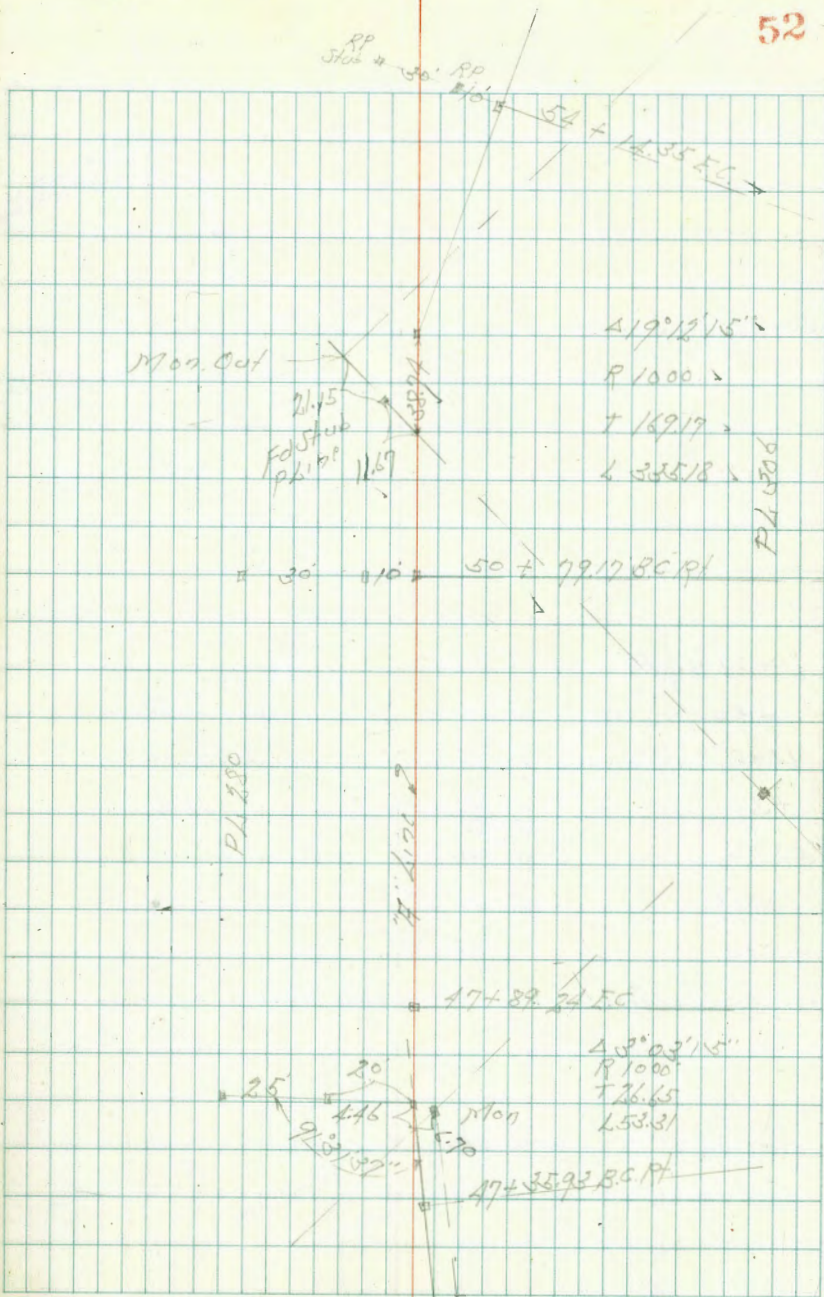 52
RP
Stub 30' RP
10'
54 + 14.35 E.C.
Δ 19°12'15"
R 1000
T 169.17
L 335.18
Mon. Out
21.15
38.74
Fd Stub
P Line
11.67
PL 306
30' 10' 50 + 79.17 B.C. Rt
PL 280
"A" Line
47 + 89.24 E.C.
Δ 3°03'15"
R 1000'
T 26.65
L 53.31
20'
25'
4.46
Mon
91°31'37"
47 + 35.93 B.C. Rt